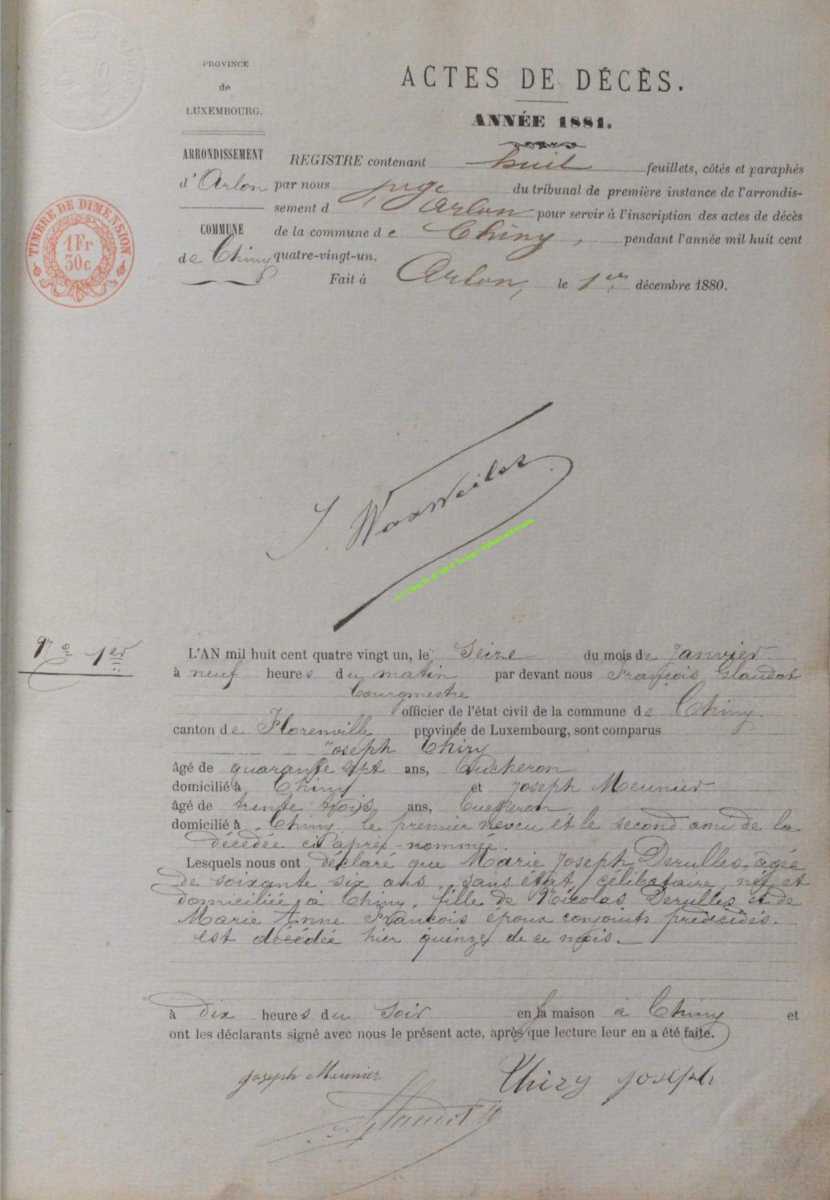 PROVINCE
de
LUXEMBOURG.
ACTES DE DÉCÈS.
ANNÉE 1881.
ARRONDISSEMENT
d'Arlon
COMMUNE
de Chiny
TIMBRE DE DIMENSION
1 Fr
50c
REGISTRE contenant huit feuillets, côtés et paraphés
par nous juge du tribunal de première instance de l'arrondis-
sement d Arlon pour servir à l'inscription des actes de décès
de la commune de Chiny, pendant l'année mil huit cent
quatre-vingt-un.
Fait à Arlon, le 1er décembre 1880.
N° 1er
L'AN mil huit cent quatre vingt un, le Seize du mois de Janvier
à neuf heures du matin par devant nous François
bourgmestre
officier de l'état civil de la commune de Chiny
canton de Florenville province de Luxembourg, sont comparus
Joseph Thiry
âgé de quarante sept ans, bucheron
domicilié à Chiny et Joseph Meunier
âgé de trente trois ans, bucheron
domicilié à Chiny le premier neveu et le second ami de la
décédée ci après-nommée.
Lesquels nous ont déclaré que Marie Joseph Derulles, agée
de soixante six ans, sans état, célibataire, née et
domiciliée à Chiny, fille de Nicolas Derulles et de
Marie Anne François époux conjoints prédécédés.
est décédée hier quinze de ce mois.
à dix heures du Soir en la maison à Chiny et
ont les déclarants signé avec nous le présent acte, après que lecture leur en a été faite.
Joseph Meunier
Thiry Joseph